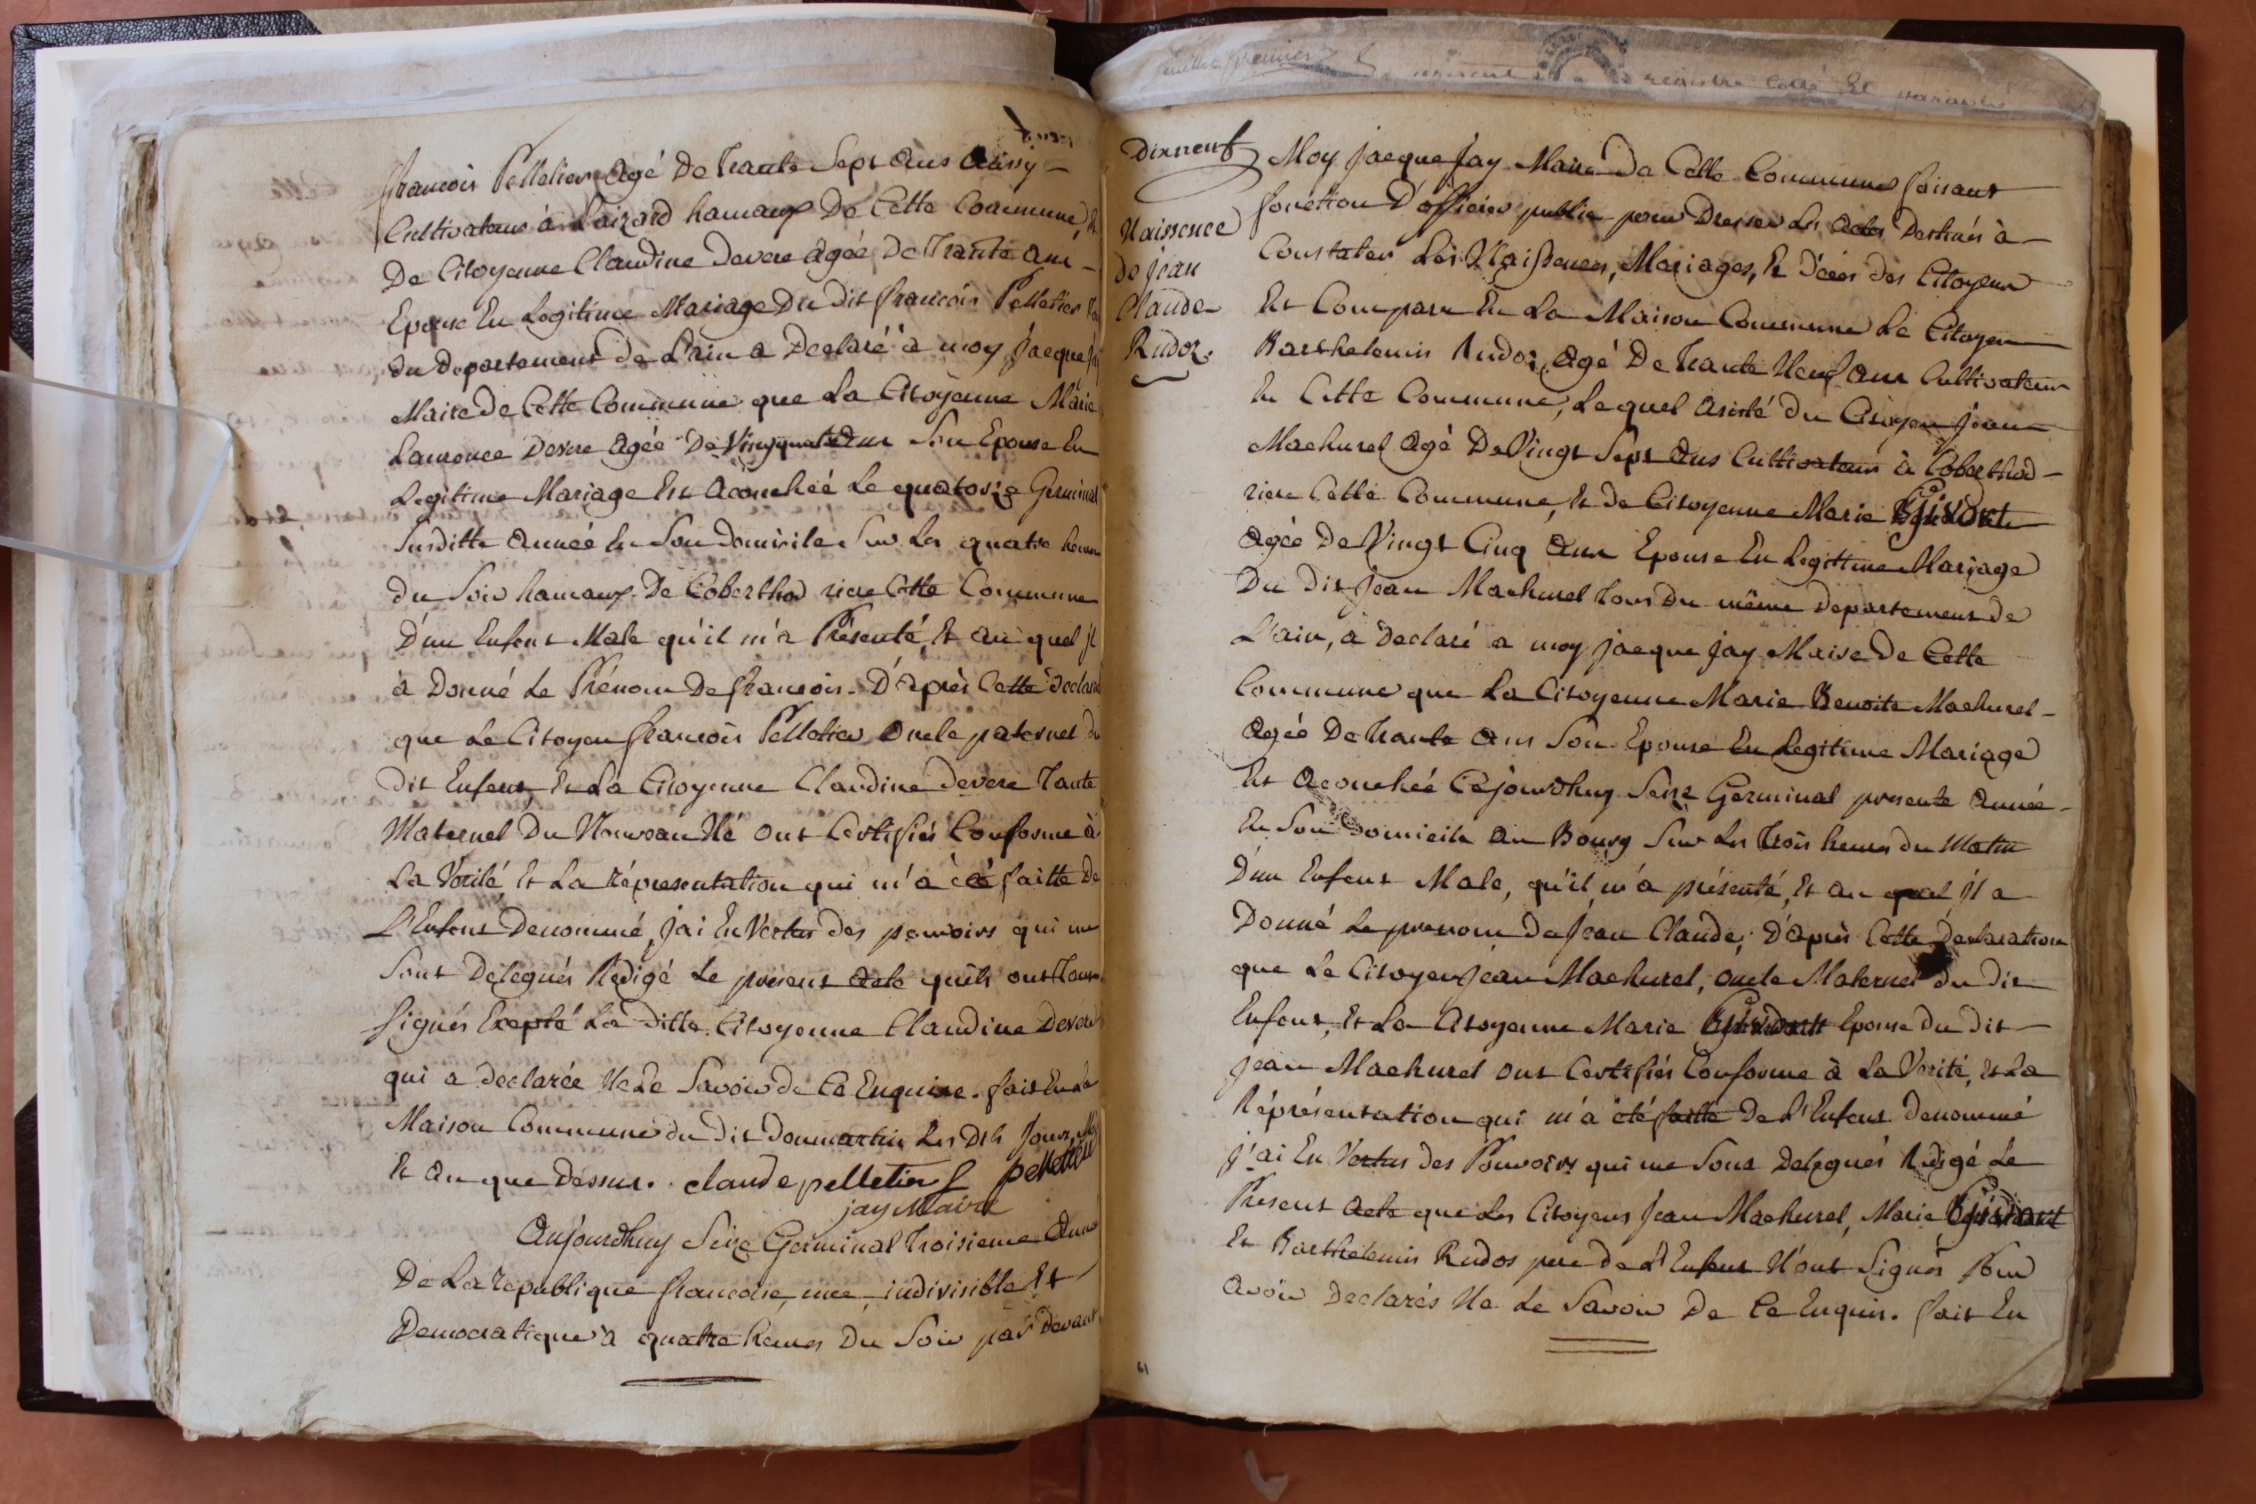 francois Pelletier agé De trante Sept ans aussy
Cultivateur à Laizard hameaux De Cette Commune, &
De Citoyenne Claudine Devere agée De trante ans
Epouse En Legitime Mariage Du dit francois Pelletier
du Departement de L'ain a Declaré à moy Jacque Jay
Maire de Cette Commune que La Citoyenne Marie
Laurence Devere agée De Vingquatre ans Son Epouse En
Legitime Mariage Est acouchéé Le quatorze Germinal
Susditte année En Son Domicile Sur Les quatre heures
du Soir hameaux De Coberthod riere Cette Commune
D'un Enfent Male qu'il m'a Présenté, Et au quel jl
à Donné Le Prénom De francois. D'après Cette Declara
que Le Citoyen francois Pelletier Oncle paternel du
dit Enfent, Et La Citoyenne Claudine Devere Tante
Maternel Du Nouveau Né ont Certifiés Conforme à
La Vérité Et La répresentation qui m'a été faitte De
L'Enfent Denommé, J'ai En Vertus des pouvoirs qui me
Sont Delegués Rédigé Le présent Acte qu'ils ont Tous
Signés Excepté La ditte Citoyenne Claudine Devere
qui a declarée Ne Le Savoir de Ce Enquise. fait En La
Maison Commune du Dit Donmartin Les Dits Jours, Mois
Et an que Dessus. claude pelletier f pelletier
jay Maire
Aujourdhuy Seize Germinal Troisieme Année
De La république francoise, une, indivisible Et
Democratique à quatre heures Du Soir par Devant
Dixneuf
Naissence
De Jean
Claude
Rudoz.
Moy Jacque Jay Maire De Cette Commune faisant
fonction D'officier public pour Dresser Les Actes Destinés à
Constater Les Naissences, Mariages, Et Décés des Citoyens
Est Comparu En La Maison Commune Le Citoyen
Barthelemis Rudoz, agé De trante Neuf ans Cultivateur
En Cette Commune, Lequel asisté du Citoyen Jean
Machurel agé De Vingt Sept ans Cultivateur à Coberthod
riere Cette Commune, Et de Citoyenne Marie
agée De Vingt Cinq ans Epouse En Legittime Mariage
Du Dit Jean Machurel Tous Du même Departement de
L'ain, a Declaré a moy Jacque Jay Maire De Cette
Commune que La Citoyenne Marie Benoite Machurel
agée De trante ans Son Epouse En Legitime Mariage
Est acouchéé Cejourdhuy Seize Germinal presente année
En Son Domicile au Bourg Sur Les Trois heures du Matin
D'un Enfent Male, qu'il m'a présenté, Et au quel Jl a
Donné Le prenom De Jean Claude; D'après Cette Declaration
que Le Citoyen Jean Machurel, oncle Maternel du dit
Enfent, Et La Citoyenne Marie Epouse Du dit
Jean Machurel ont Certifiés Conforme à La Vérité, Et La
Répréséntation qui m'a été faitte De L'Enfent Denommé
J'ai En Vertus Des Pouvoirs qui me Sont Delegués Redigé Le
Présent acte que Les Citoyens Jean Machurel, Marie
Et Barthelemis Rudos pere de L'Enfent N'ont Signés Pour
avoir Declarés Ne Le Savoir De Ce Enquis. fait En
61